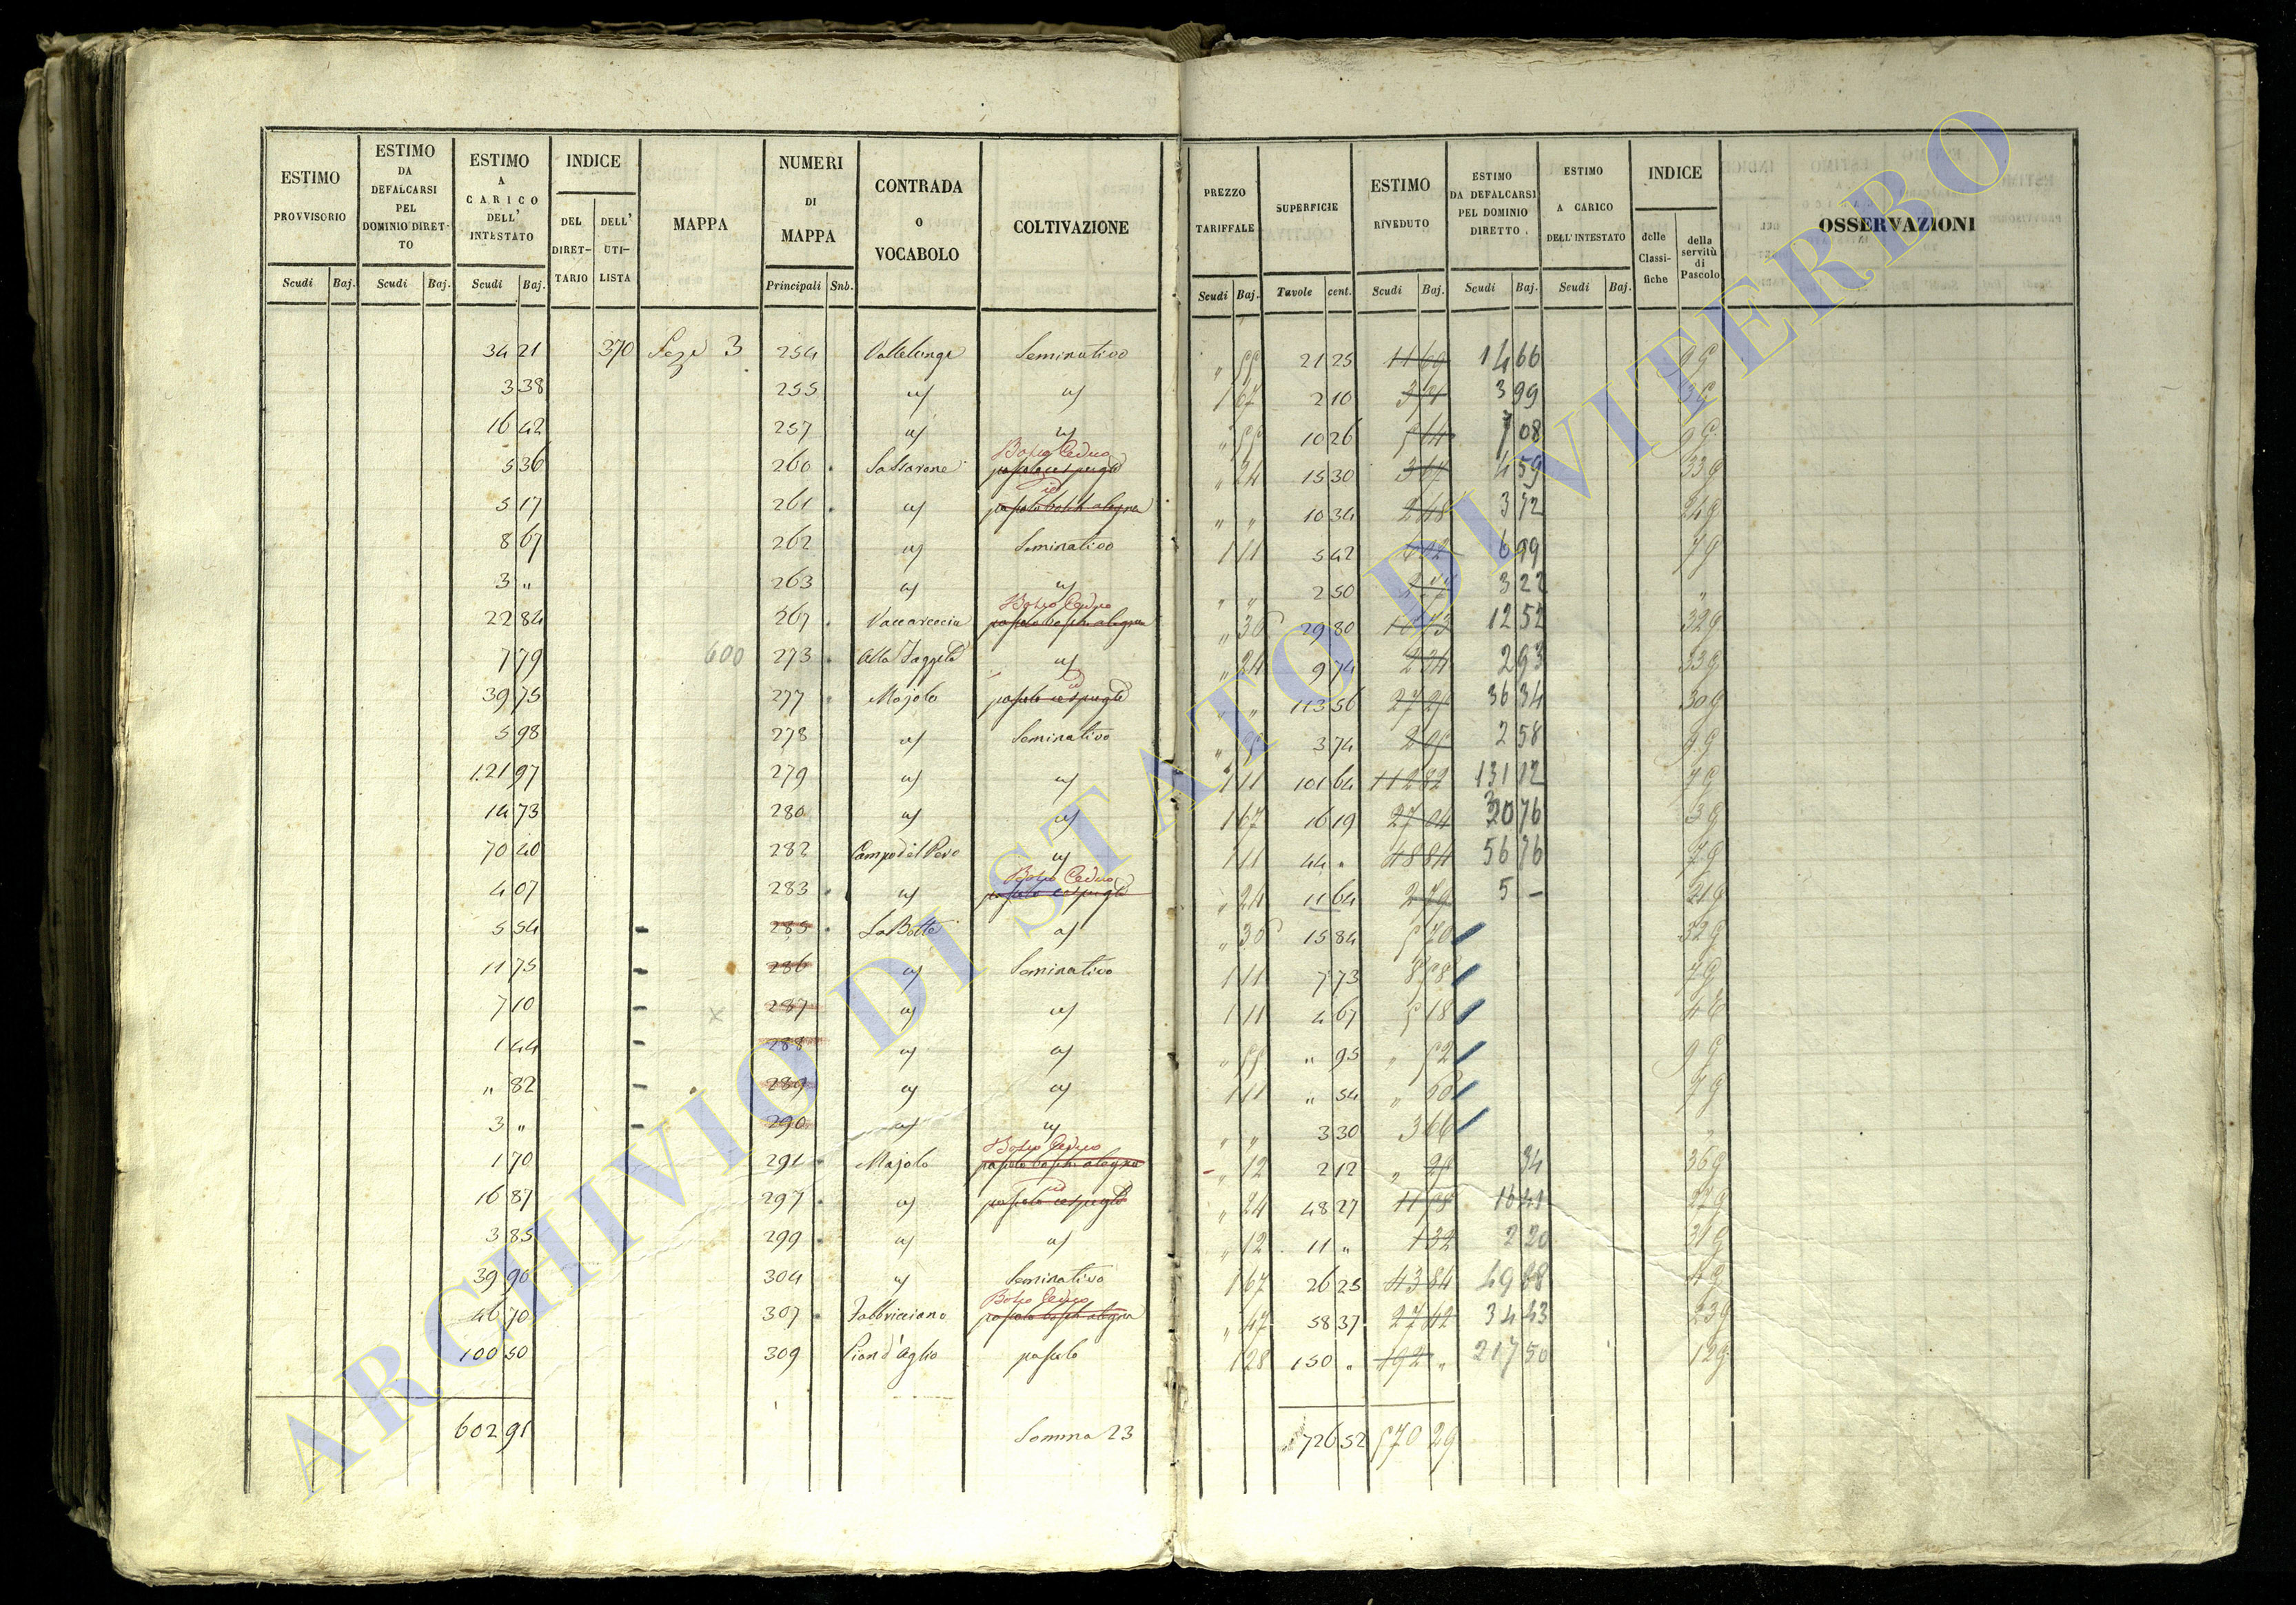 ESTIMO PROVVISORIO Scudi Baj.
ESTIMO DA DEFALCARSI PEL DOMINIO DIRET-TO Scudi Baj.
ESTIMO A CARICO DELL' INTESTATO Scudi Baj.
INDICE DEL DIRET-TARIO DELL' UTI-LISTA
MAPPA
NUMERI DI MAPPA Principali Sub.
CONTRADA O VOCABOLO
COLTIVAZIONE
PREZZO TARIFFALE Scudi Baj.
SUPERFICIE Tavole cent.
ESTIMO RIVEDUTO Scudi Baj.
ESTIMO DA DEFALCARSI PEL DOMINIO DIRETTO Scudi Baj.
ESTIMO A CARICO DELL'INTESTATO Scudi Baj.
INDICE delle Classi-fiche della servitù di Pascolo
OSSERVAZIONI
34 21 370 Sez. 3 254 Vallelunga Seminativo " 55 21 25 11 69 14 66
3 38 255 1 67 2 10 3 99
16 42 257 " 55 10 26 5 64 7 08
5 36 260 Bosco Ceduo pascolo cespugl. " 24 15 30 3 67 4 59 33
5 17 261 id " " 10 34 2 48 3 12 24
8 67 262 Seminativo 1 11 5 42 6 02 6 99 7
3 " 263 " " 2 50 2 77 3 22 "
22 84 267 Bosco Ceduo " 36 29 80 10 73 12 52 32
7 79 600 273 " 24 9 74 2 34 2 93 33
39 75 277 Majolo id pascolo cespugl. " " 113 56 27 25 36 34 30
5 98 278 Seminativo " 55 3 74 2 05 2 58
121 97 279 1 11 101 64 112 82 131 12 7
14 73 280 1 67 16 19 27 04 30 76 3
70 40 282 Campo del Pero 1 11 44 " 48 84 56 76 7
4 07 283 Bosco Ceduo pascolo cespugl. " 24 11 64 2 79 5 - 21
5 54 285 La Botte " 36 15 84 5 70 32
11 75 286 Seminativo 1 11 7 73 8 58 7
7 10 287 1 11 4 67 5 18 4
1 44 288 " 55 " 95 " 52
" 82 289 1 11 " 54 " 60 7
3 " 290 " " 3 30 3 66
1 70 291 Majolo Bosco Ceduo " 12 2 12 " 25 34 36
16 87 297 id pascolo cespugl. " 24 48 27 11 58 16 41
3 85 299 " 12 11 " 1 32 2 20 31
39 90 304 Seminativo 1 67 26 25 43 84 49 88 4
46 70 307 Fabbricciano Bosco Ceduo " 47 58 37 27 42 34 43 23
100 50 309 Pian d'Aglio pascolo 1 28 150 " 192 " 217 50 12
602 91 Somma 23 726 52 570 29
ARCHIVIO DI STATO DI VITERBO